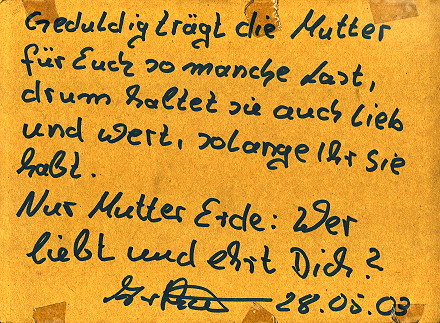 Geduldig trägt die Mutter
für Euch so manche Last,
drum haltet sie auch lieb
und wert, solange Ihr sie
habt.
Nur Mutter Erde: Wer
liebt und ehrt Dich?
28.05.03